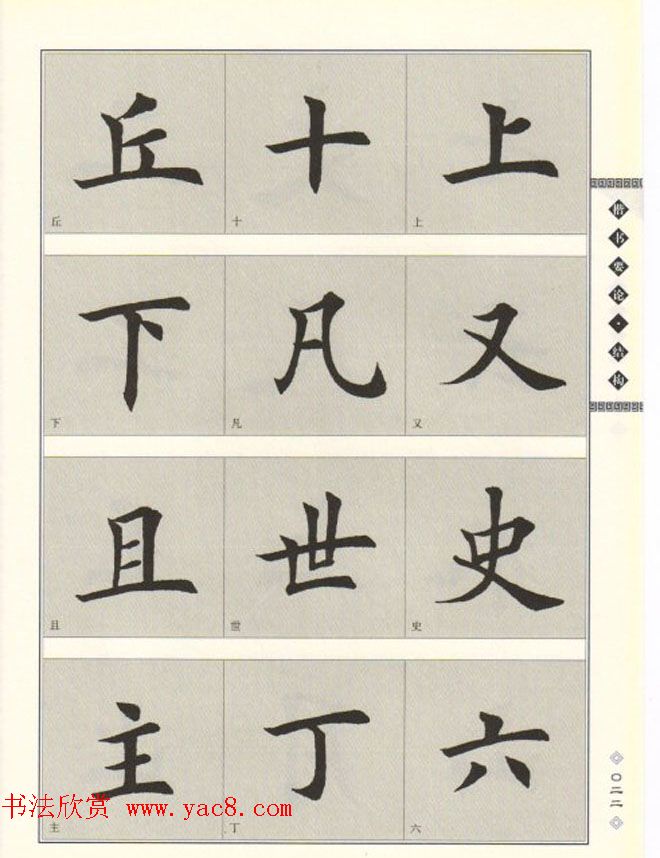 丘 十 上
丘 十 上
下 凡 又
下 凡 又
且 世 史
且 世 史
主 丁 六
主 丁 六
楷书要论·结构
〇二二
书法欣赏 www.yac8.com